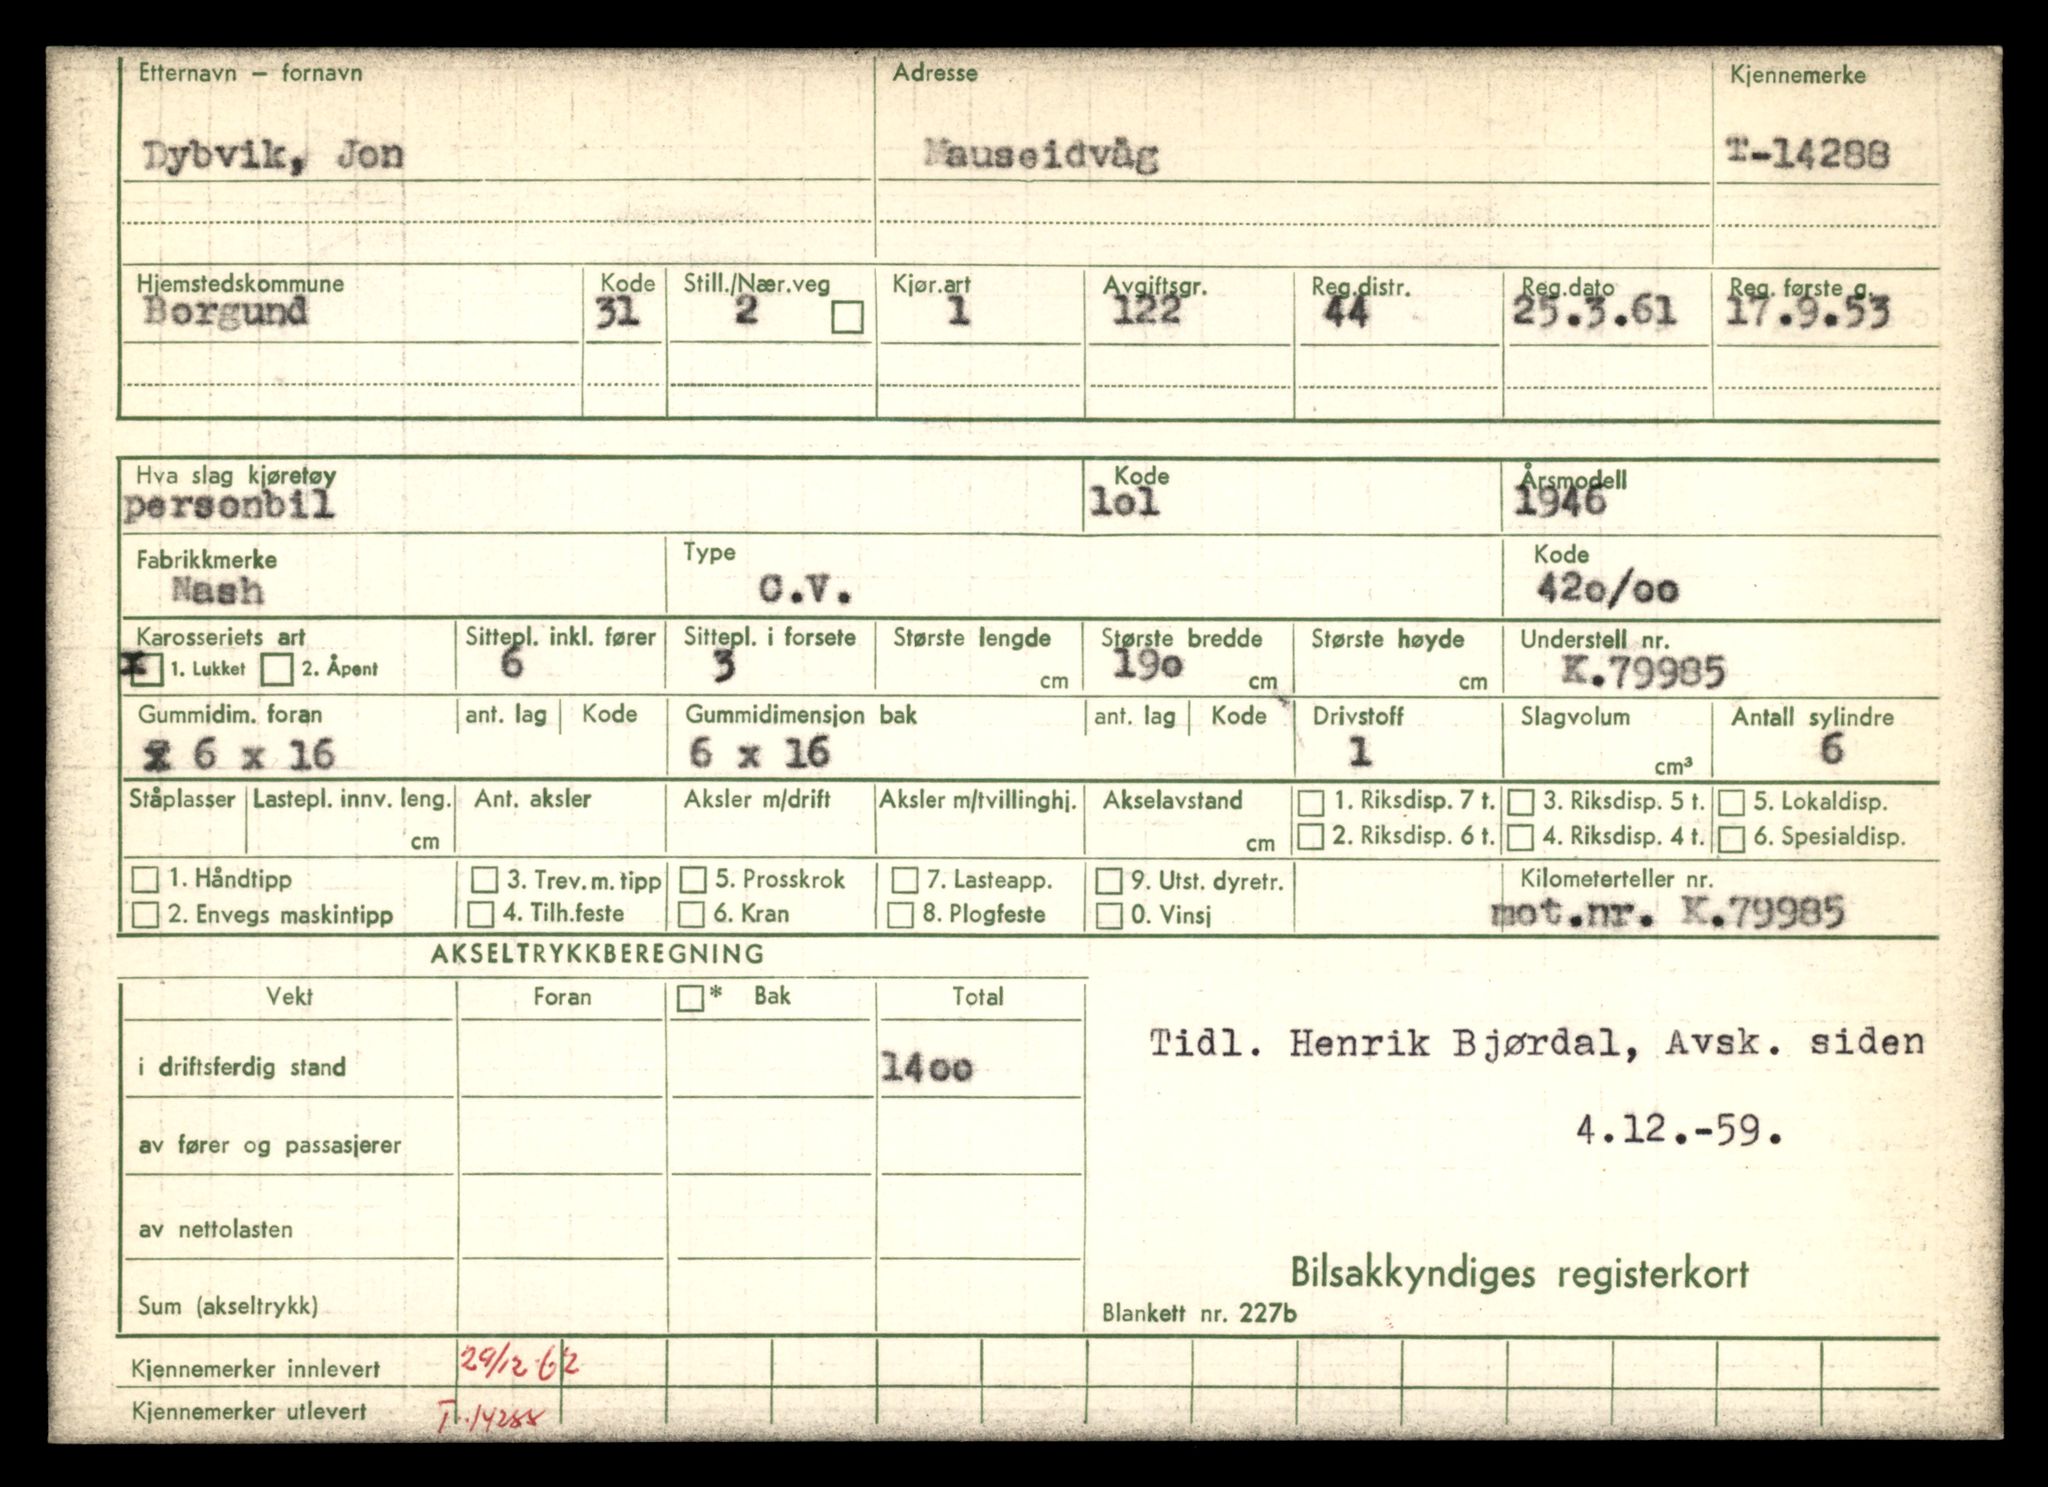 Etternavn – fornavn Adresse Kjennemerke
Dybvik, Jon Mauseidvåg T-14288
Hjemstedskommune Kode Still./Nær.veg Kjør.art Avgiftsgr. Reg.distr. Reg.dato Reg. første g.
Borgund 31 2 1 122 44 25.3.61 17.9.53
Hva slag kjøretøy Kode Årsmodell
personbil lol 1946
Fabrikkmerke Type Kode
Nash C.V. 42o/oo
Karosseriets art Sittepl. inkl. fører Sittepl. i forsete Største lengde Største bredde Største høyde Understell nr.
x 1. Lukket 2. Åpent 6 3 cm 19o cm cm K.79985
Gummidim. foran ant. lag Kode Gummidimensjon bak ant. lag Kode Drivstoff Slagvolum Antall sylindre
6 x 16 6 x 16 1 cm³ 6
Ståplasser Lastepl. innv. leng. Ant. aksler Aksler m/drift Aksler m/tvillinghj. Akselavstand 1. Riksdisp. 7 t. 3. Riksdisp. 5 t. 5. Lokaldisp.
cm cm 2. Riksdisp. 6 t. 4. Riksdisp. 4 t. 6. Spesialdisp.
1. Håndtipp 3. Trev. m. tipp 5. Prosskrok 7. Lasteapp. 9. Utst. dyretr. Kilometerteller nr.
2. Envegs maskintipp 4. Tilh.feste 6. Kran 8. Plogfeste 0. Vinsj mot.nr. K.79985
AKSELTRYKKBEREGNING
Vekt Foran * Bak Total
i driftsferdig stand 14oo
av fører og passasjerer
av nettolasten
Sum (akseltrykk)
Tidl. Henrik Bjørdal, Avsk. siden
4.12.-59.
Bilsakkyndiges registerkort
Blankett nr. 227b
Kjennemerker innlevert 29/12-62
Kjennemerker utlevert T.14288